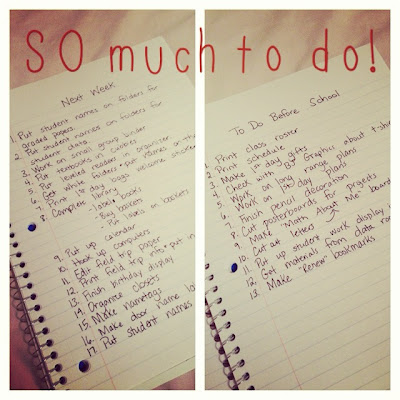 SO much to do!
Next Week
1. Put student names on folders for
graded papers
2. Put student names on folders for
student data
3. Work on small group binder
4. Put textbooks in cubbies
5. Put leveled readers in organizer
6. Get white folders + put names on them
7. Print 1st day bags welcome sticker
8. Complete library
- label books
- buy baskets
- put labels on baskets
9. Put up calendar
10. Hook up computers
11. Edit field trip paper
12. Print field trip
13. Finish birthday display
14. Organize closets
15. Make nametags
16. Make door name
17. Put student names
To Do Before School
1. Print class roster
2. Print schedule
3. Make 1st day gifts
4. Check with Graphics about t-shir
5. Work on long range plans
6. Work on 1st day plans
7. Finish pencil decoration
8. Cut posterboards for projects
9. Make "Math About Me" board
10. Cut letters
11. Put up student work display
12. Get materials from data roo
13. Make "Renew" bookmarks